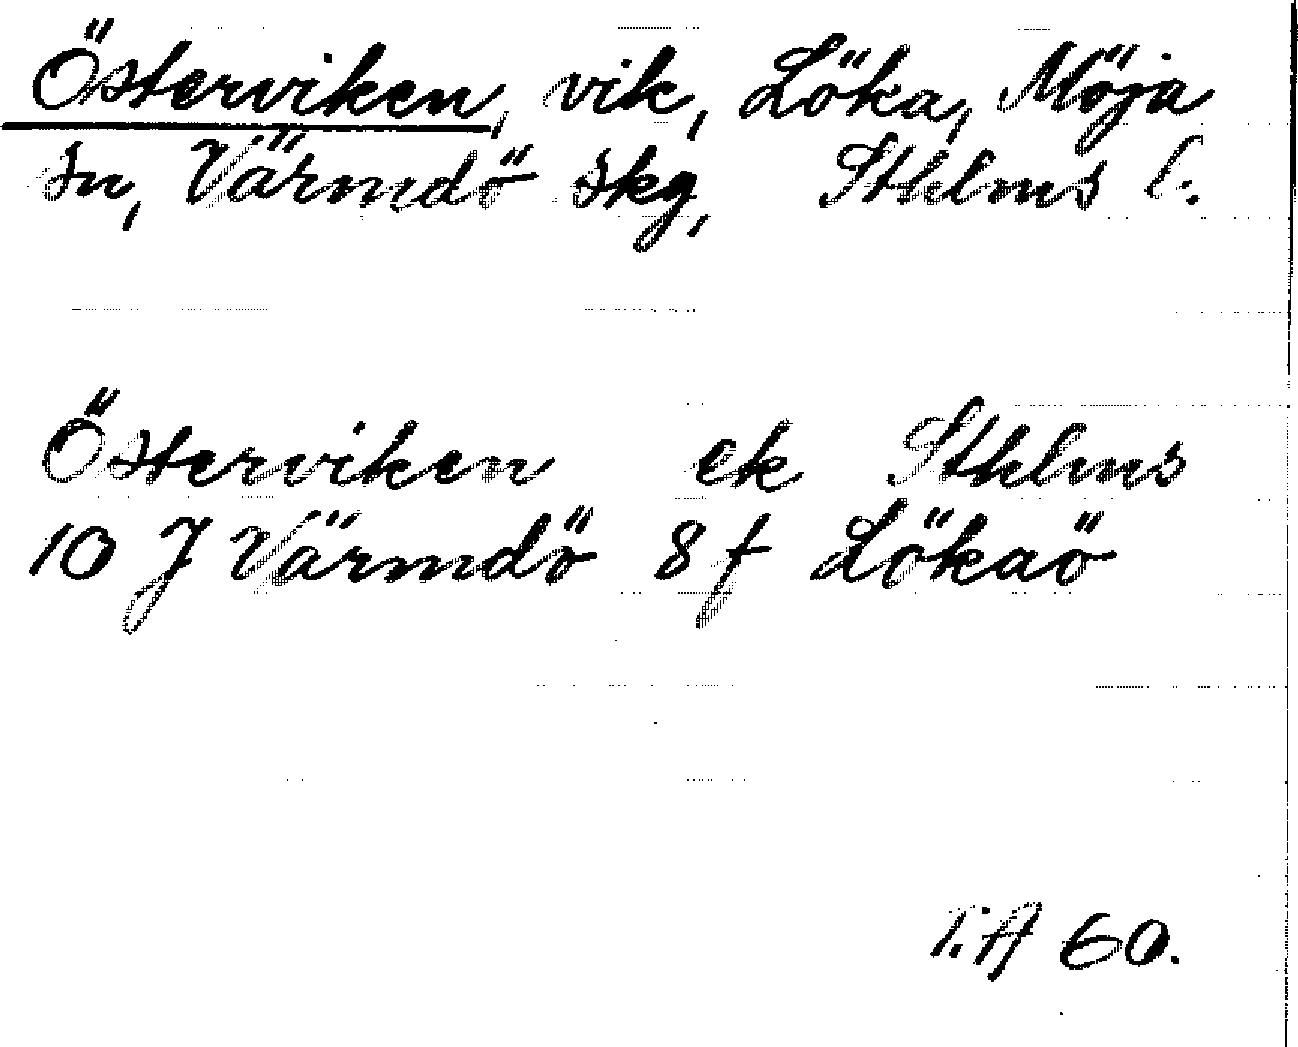 Österviken, vik, Löka, Möja
sn, Värmdö skg, Sthlms l.
Österviken ek Sthlms
10 J Värmdö 8 f Lökaö
T.A 60.